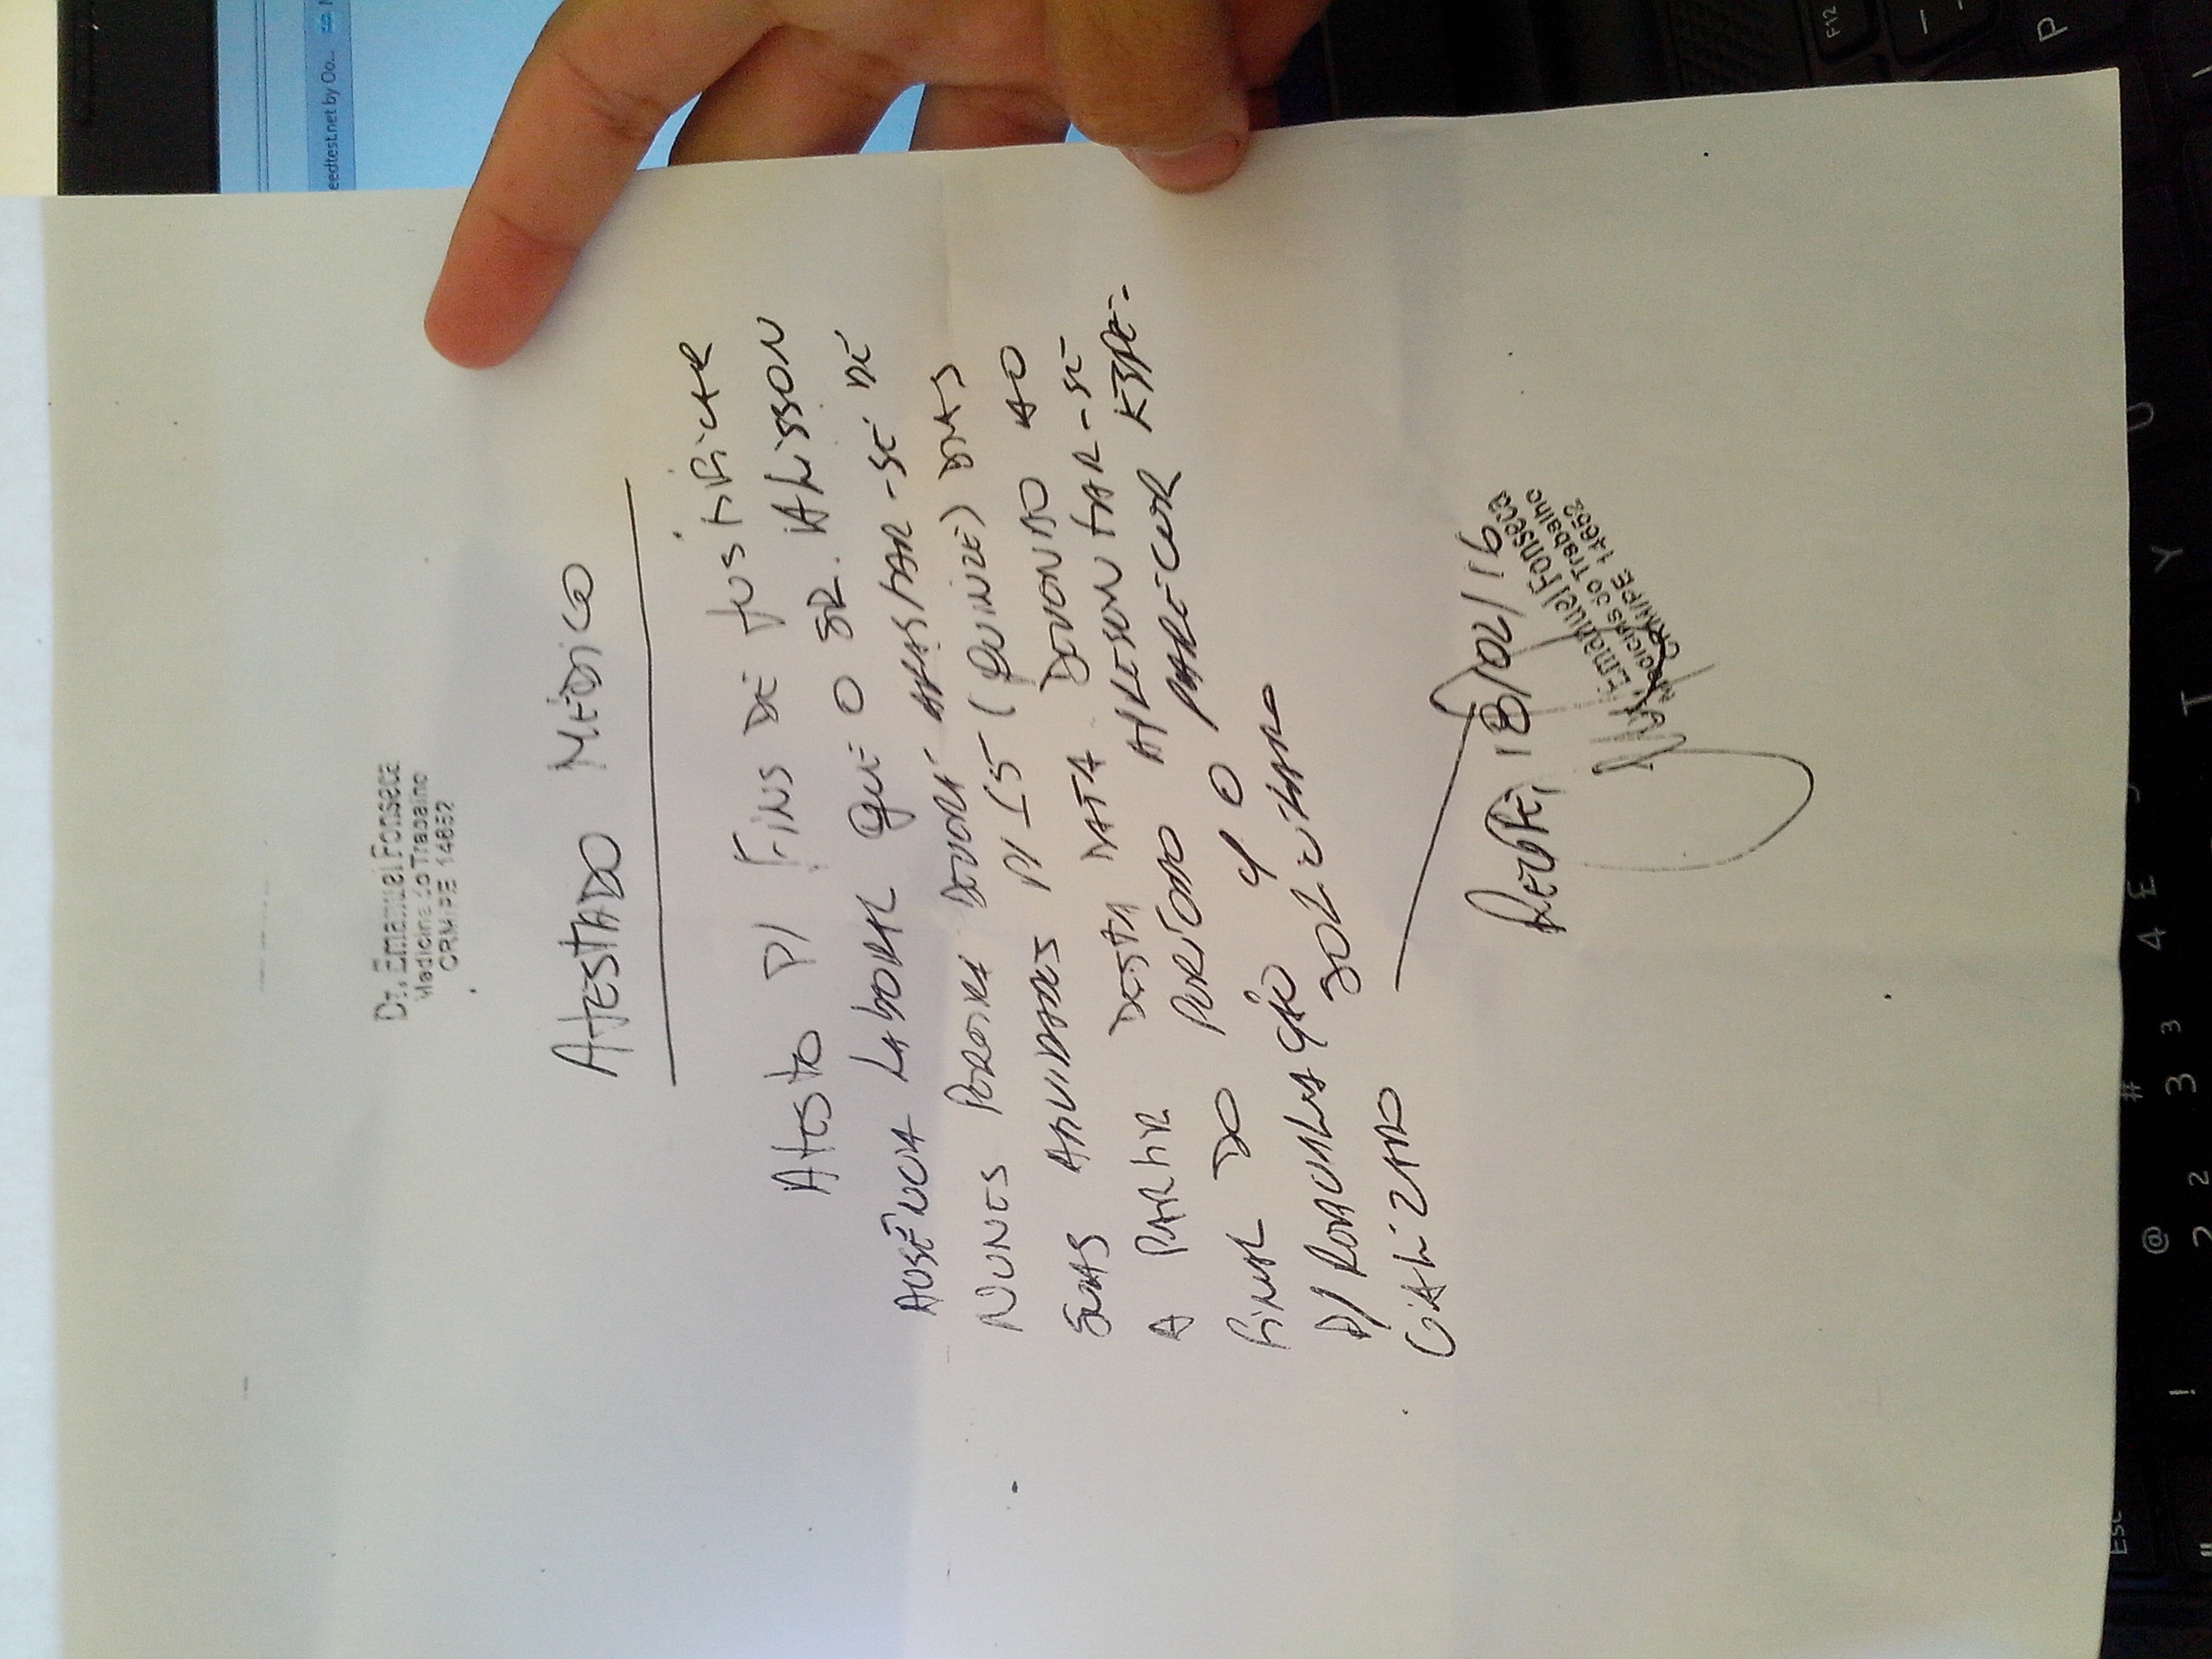 Dr. Emanuel Fonseca
Medicina do Trabalho
CRM/PE 14652
ATESTADO MÉDICO
ATESTO P/ FINS DE JUSTIFICAR
AUSÊNCIA LABORAL QUE O SR. ALISSON
NUNES PEREIRA DEVERÁ AFASTAR-SE DE
SUAS ATIVIDADES P/ 15 (QUINZE) DIAS
A PARTIR DESTA DATA DEVENDO AO
FINAL DO PERÍODO APRESENTAR-SE
P/ REAVALIAÇÃO C/ O PARECER ESPE-
CIALIZADO SOLICITADO
RECIFE, 18/02/16
Dr. Emanuel Fonseca
Medicina do Trabalho
CRM/PE 14652
eedtest.net by Oo...
F12
P
Esc
@
#
!
2
2
3
3
4
E
T
Y
U